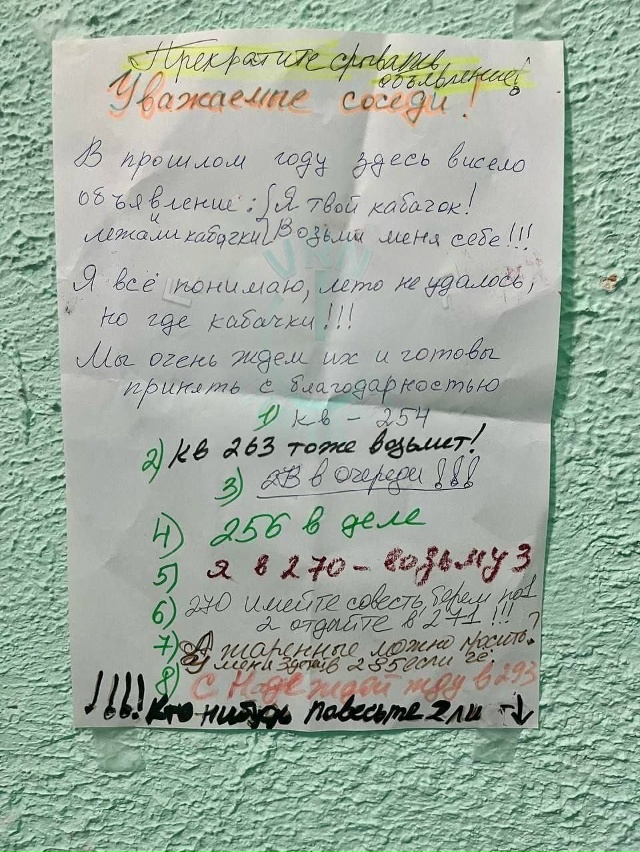 Прекратите срывать
объявление!
Уважаемые соседи!
В прошлом году здесь висело
объявление: Я твой кабачок!
и лежали кабачки Возьми меня себе!!!
Я всё понимаю, лето не удалось,
но где кабачки!!!
Мы очень ждем их и готовы
принять с благодарностью
1) кв - 254
2) кв 263 тоже возьмет!
3) в очереди!!!
4) 256 в деле
5) я в 270 - возьму 3
6) 270 имейте совесть, берем по 1
2 отдайте в 271!!!
7) А жаренные можно просить?
У меня в 235 если че.
8) С Надеждой жду в 293
!!!! Кто нибудь повесьте 2 ли →↓